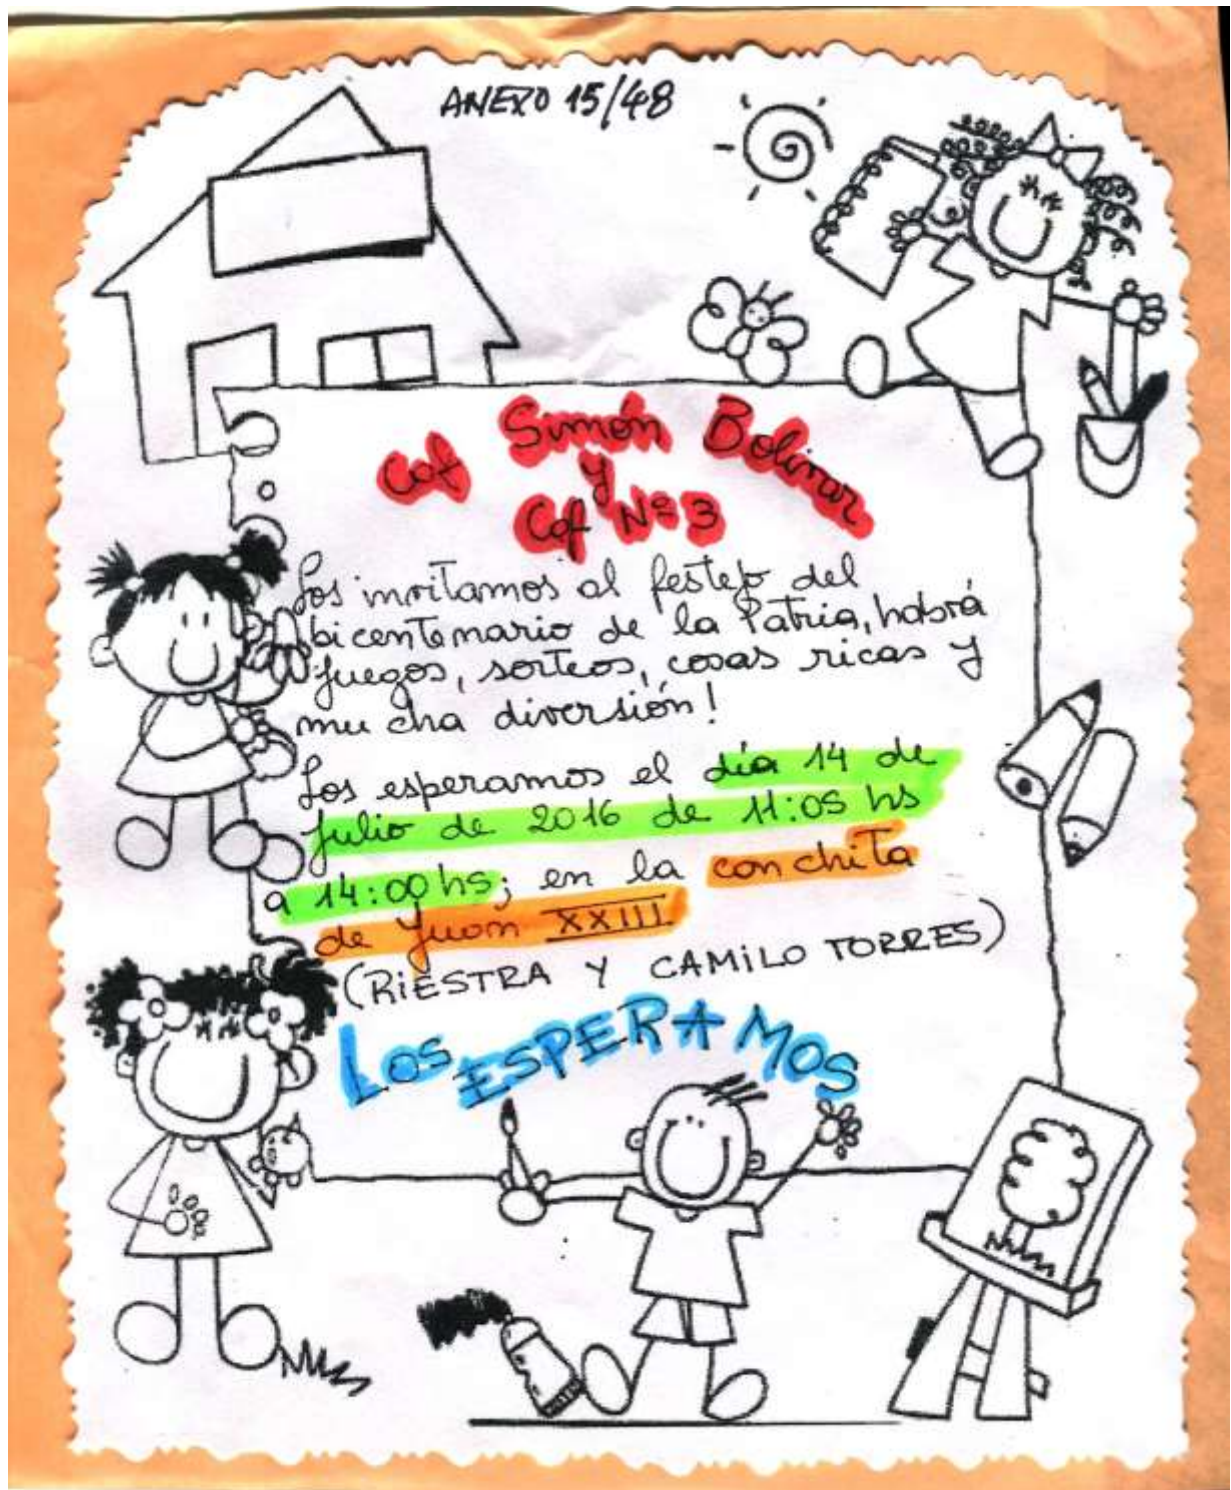 ANEXO 15/48
Caf Simón Bolivar
y
Caf Nº 3
Los invitamos al festejo del
bicentenario de la Patria, habrá
juegos, sorteos, cosas ricas y
mucha diversión!
Los esperamos el día 14 de
Julio de 2016 de 11:05 hs
a 14:00 hs; en la conchita
de Juan XXIII.
(RIESTRA Y CAMILO TORRES)
LOS ESPERAMOS